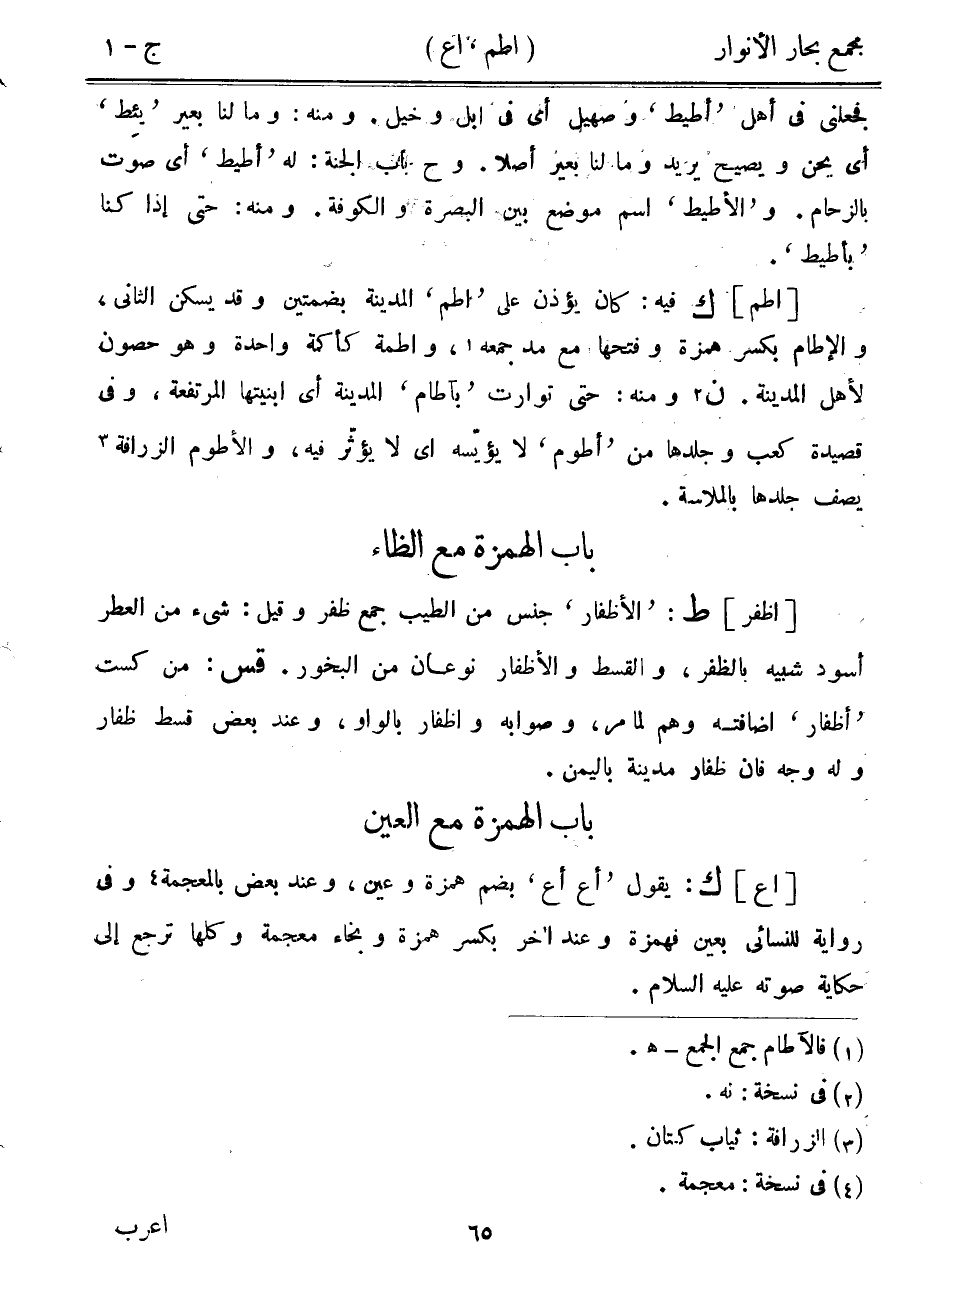 مجمع بحار الأنوار ( اطم ، اع ) ج - ١
فجعلنى فى أهل ’أطيط‘ و صهيل أى فى ابل و خيل . و منه : و ما لنا بعير ’يئط‘
أى يحن و يصيح يريد و ما لنا بعير أصلا . و ح باب الجنة : له ’أطيط‘ أى صوت
بالزحام . و ’الأطيط‘ اسم موضع بين البصرة و الكوفة . و منه : حتى إذا كنا
’بأطيط‘ .
[ اطم ] ك فيه : كان يؤذن على ’اطم‘ المدينة بضمتين و قد يسكن الثانى ،
و الإطام بكسر همزة و فتحها مع مد جمعه ١ ، و اطمة كأكمة واحدة و هو حصون
لأهل المدينة . ن٢ و منه : حتى توارت ’بآطام‘ المدينة أى ابنيتها المرتفعة ، و فى
قصيدة كعب و جلدها من ’أطوم‘ لا يؤيّسه اى لا يؤثّر فيه ، و الأطوم الزرافة ٣
يصف جلدها بالملاسة .
باب الهمزة مع الظاء
[ اظفر ] ط : ’الأظفار‘ جنس من الطيب جمع ظفر و قيل : شىء من العطر
أسود شبيه بالظفر ، و القسط و الأظفار نوعان من البخور . قس : من كست
’أظفار‘ اضافتـه وهم لما مر ، و صوابه و اظفار بالواو ، و عند بعض قسط ظفار
و له وجه فان ظفار مدينة باليمن .
باب الهمزة مع العين
[ اع ] ك : يقول ’أع أع‘ بضم همزة و عين ، و عند بعض بالمعجمة٤ و فى
رواية للنسائى بعين فهمزة و عند اخر بكسر همزة و بخاء معجمة و كلها ترجع إلى
حكاية صوته عليه السلام .
(١) فالآطام جمع الجمع - ه .
(٢) فى نسخة : نه .
(٣) الزرافة : ثياب كتان .
(٤) فى نسخة : معجمة .
٦٥ اعرب